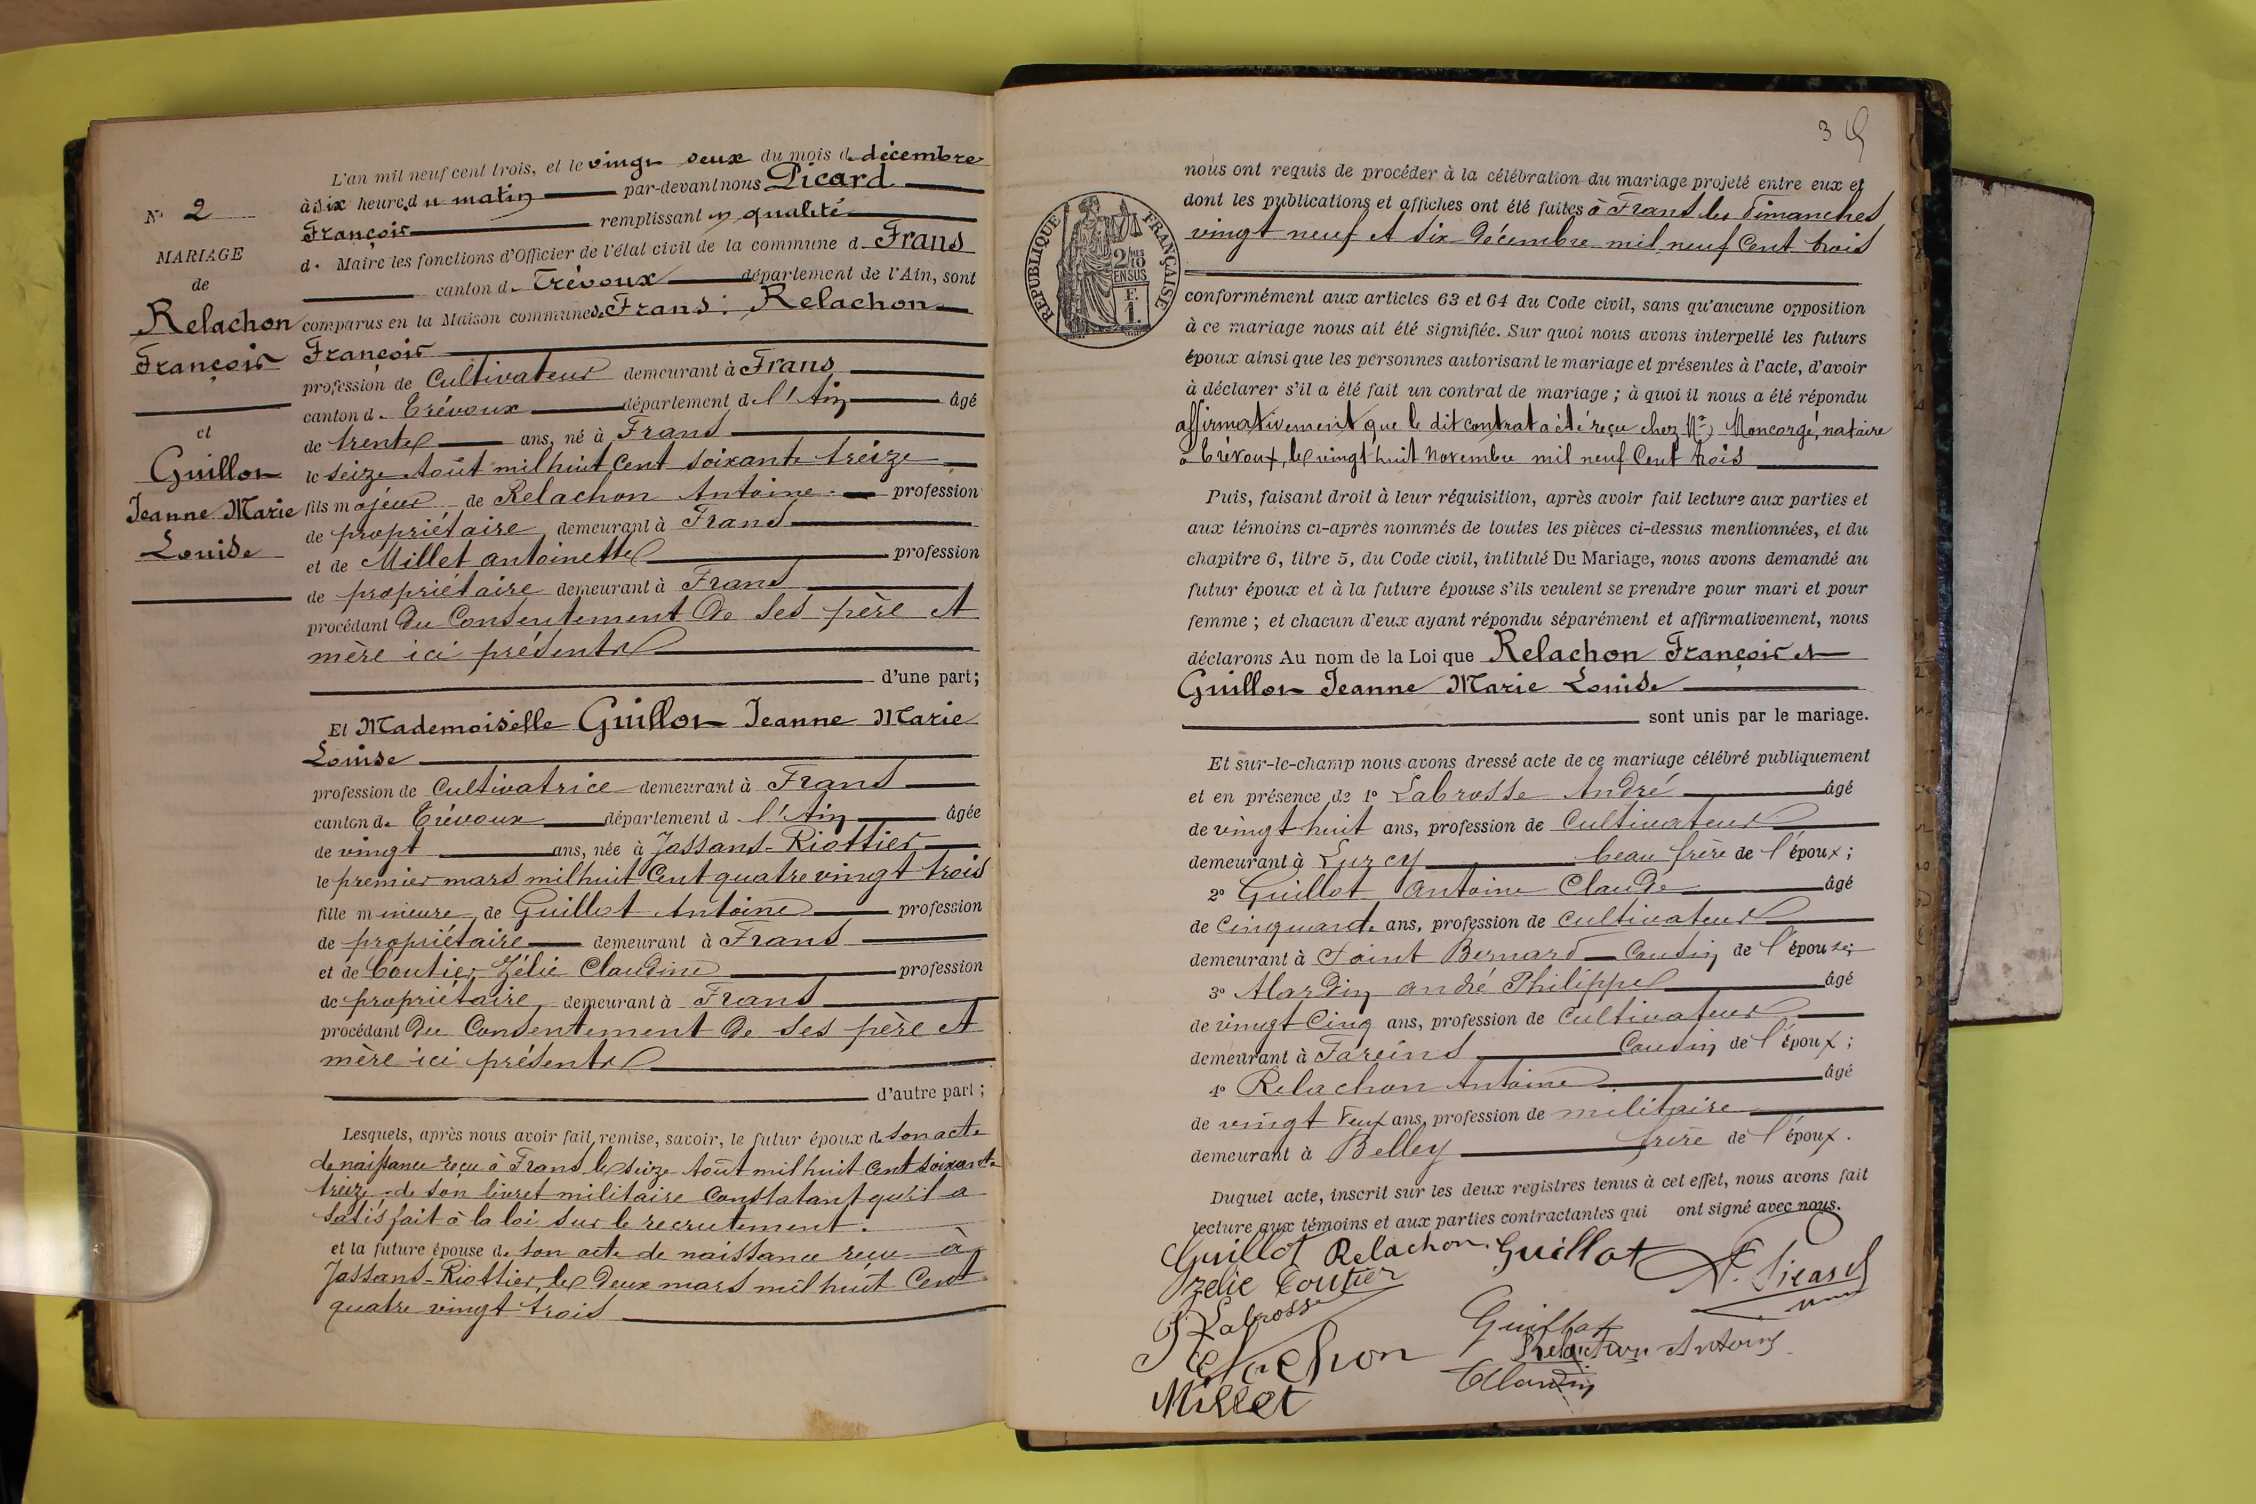 N° 2
MARIAGE
de
Relachon
François
et
Guillot
Jeanne Marie
Louise
L'an mil neuf cent trois, et le vingt deux du mois de décembre
à dix heures du matin par-devant nous Picard
François remplissant en qualité
d. Maire les fonctions d'Officier de l'état civil de la commune d. Frans
canton d. Trévoux département de l'Ain, sont
comparus en la Maison commune de Frans : Relachon
François
profession de Cultivateur demeurant à Frans
canton d. Trévoux département de l'Ain âgé
de trente ans, né à Frans
le seize Août mil huit Cent soixante treize
fils majeur de Relachon Antoine profession
de propriétaire demeurant à Frans
et de Millet Antoinette profession
de propriétaire demeurant à Frans
procédant du Consentement de ses père et
mère ici présents
d'une part;
Et Mademoiselle Guillot Jeanne Marie
Louise
profession de Cultivatrice demeurant à Frans
canton d. Trévoux département d l'Ain âgée
de vingt ans, née à Jassans-Riottier
le premier mars mil huit Cent quatre vingt trois
fille mineure de Guillot Antoine profession
de propriétaire demeurant à Frans
et de Coutier Zélie Claudine profession
de propriétaire demeurant à Frans
procédant du Consentement de ses père et
mère ici présents
d'autre part;
Lesquels, après nous avoir fait remise, savoir, le futur époux de son acte
de naissance reçu à Frans le seize Août mil huit Cent soixante
treize de son livret militaire Constatant qu'il a
satisfait à la loi sur le recrutement.
et la future épouse de son acte de naissance reçu à
Jassans-Riottier, le deux mars mil huit Cent
quatre vingt trois
3
nous ont requis de procéder à la célébration du mariage projeté entre eux et
dont les publications et affiches ont été faites à Frans les Dimanches
vingt neuf et six Décembre mil neuf Cent trois
RÉPUBLIQUE FRANÇAISE
2/10
EN SUS
F.
1.
conformément aux articles 63 et 64 du Code civil, sans qu'aucune opposition
à ce mariage nous ait été signifiée. Sur quoi nous avons interpellé les futurs
époux ainsi que les personnes autorisant le mariage et présentes à l'acte, d'avoir
à déclarer s'il a été fait un contrat de mariage ; à quoi il nous a été répondu
affirmativement que le dit contrat a été reçu chez Me Moncorgé, notaire
à Trévoux, le vingt huit Novembre mil neuf Cent trois
Puis, faisant droit à leur réquisition, après avoir fait lecture aux parties et
aux témoins ci-après nommés de toutes les pièces ci-dessus mentionnées, et du
chapitre 6, titre 5, du Code civil, intitulé Du Mariage, nous avons demandé au
futur époux et à la future épouse s'ils veulent se prendre pour mari et pour
femme ; et chacun d'eux ayant répondu séparément et affirmativement, nous
déclarons Au nom de la Loi que Relachon François et
Guillot Jeanne Marie Louise
sont unis par le mariage.
Et sur-le-champ nous avons dressé acte de ce mariage célébré publiquement
et en présence de 1° Labrosse André âgé
de vingt huit ans, profession de Cultivateur
demeurant à Lurcy beau frère de l'époux ;
2° Guillot Antoine Claude âgé
de Cinquante ans, profession de Cultivateur
demeurant à Saint Bernard Cousin de l'épouse;
3° Alardin André Philippe âgé
de vingt Cinq ans, profession de Cultivateur
demeurant à Fareins Cousin de l'époux ;
4° Relachon Antoine âgé
de vingt deux ans, profession de militaire
demeurant à Belley frère de l'époux.
Duquel acte, inscrit sur les deux registres tenus à cet effet, nous avons fait
lecture aux témoins et aux parties contractantes qui ont signé avec nous.
Guillot Relachon Guillot F. Picard
Zelie Coutier
Labrosse
Guillot
Relachon Relachon Antoine
Millet Alardin